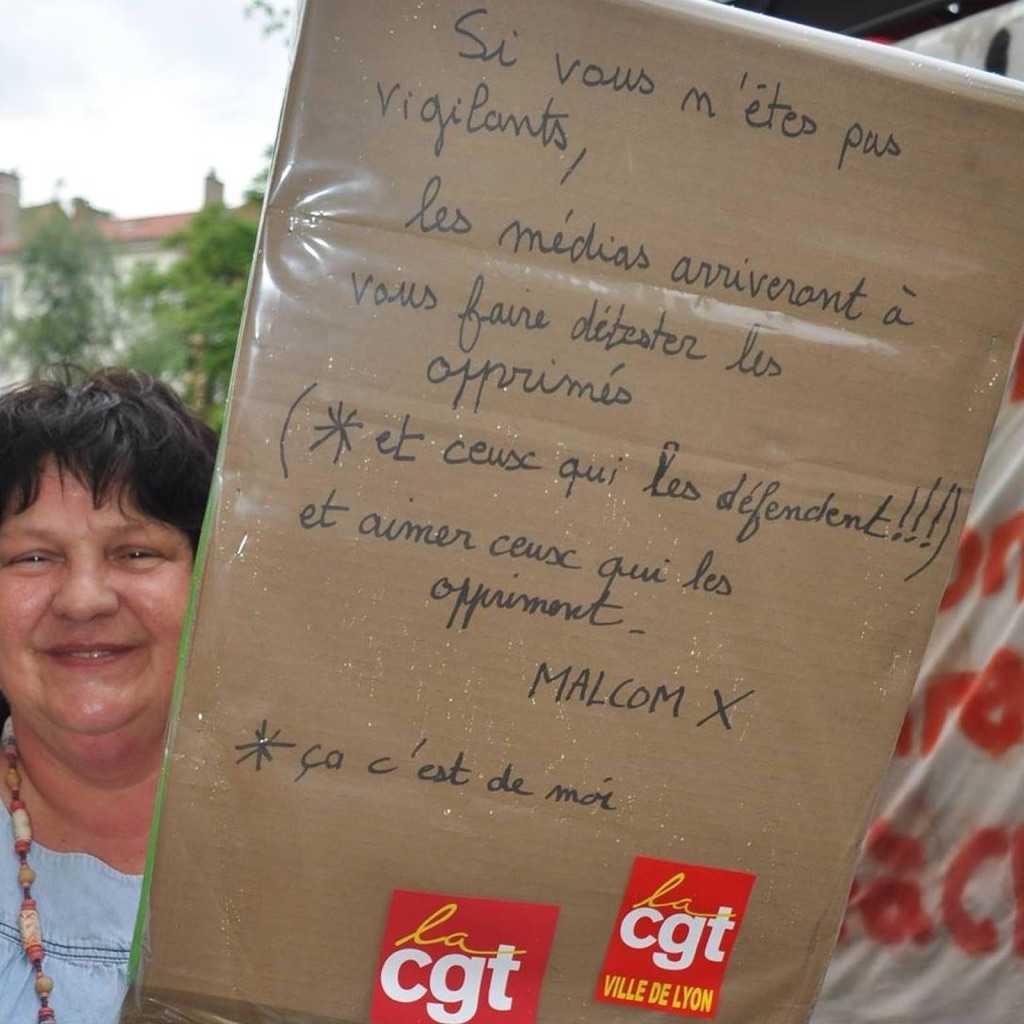 Si vous n'êtes pas
vigilants,
les médias arriveront à
vous faire détester les
opprimés
(* et ceux qui les défendent!!!)
et aimer ceux qui les
oppriment_
MALCOM X
* ça c'est de moi
la
cgt
la
cgt
VILLE DE LYON